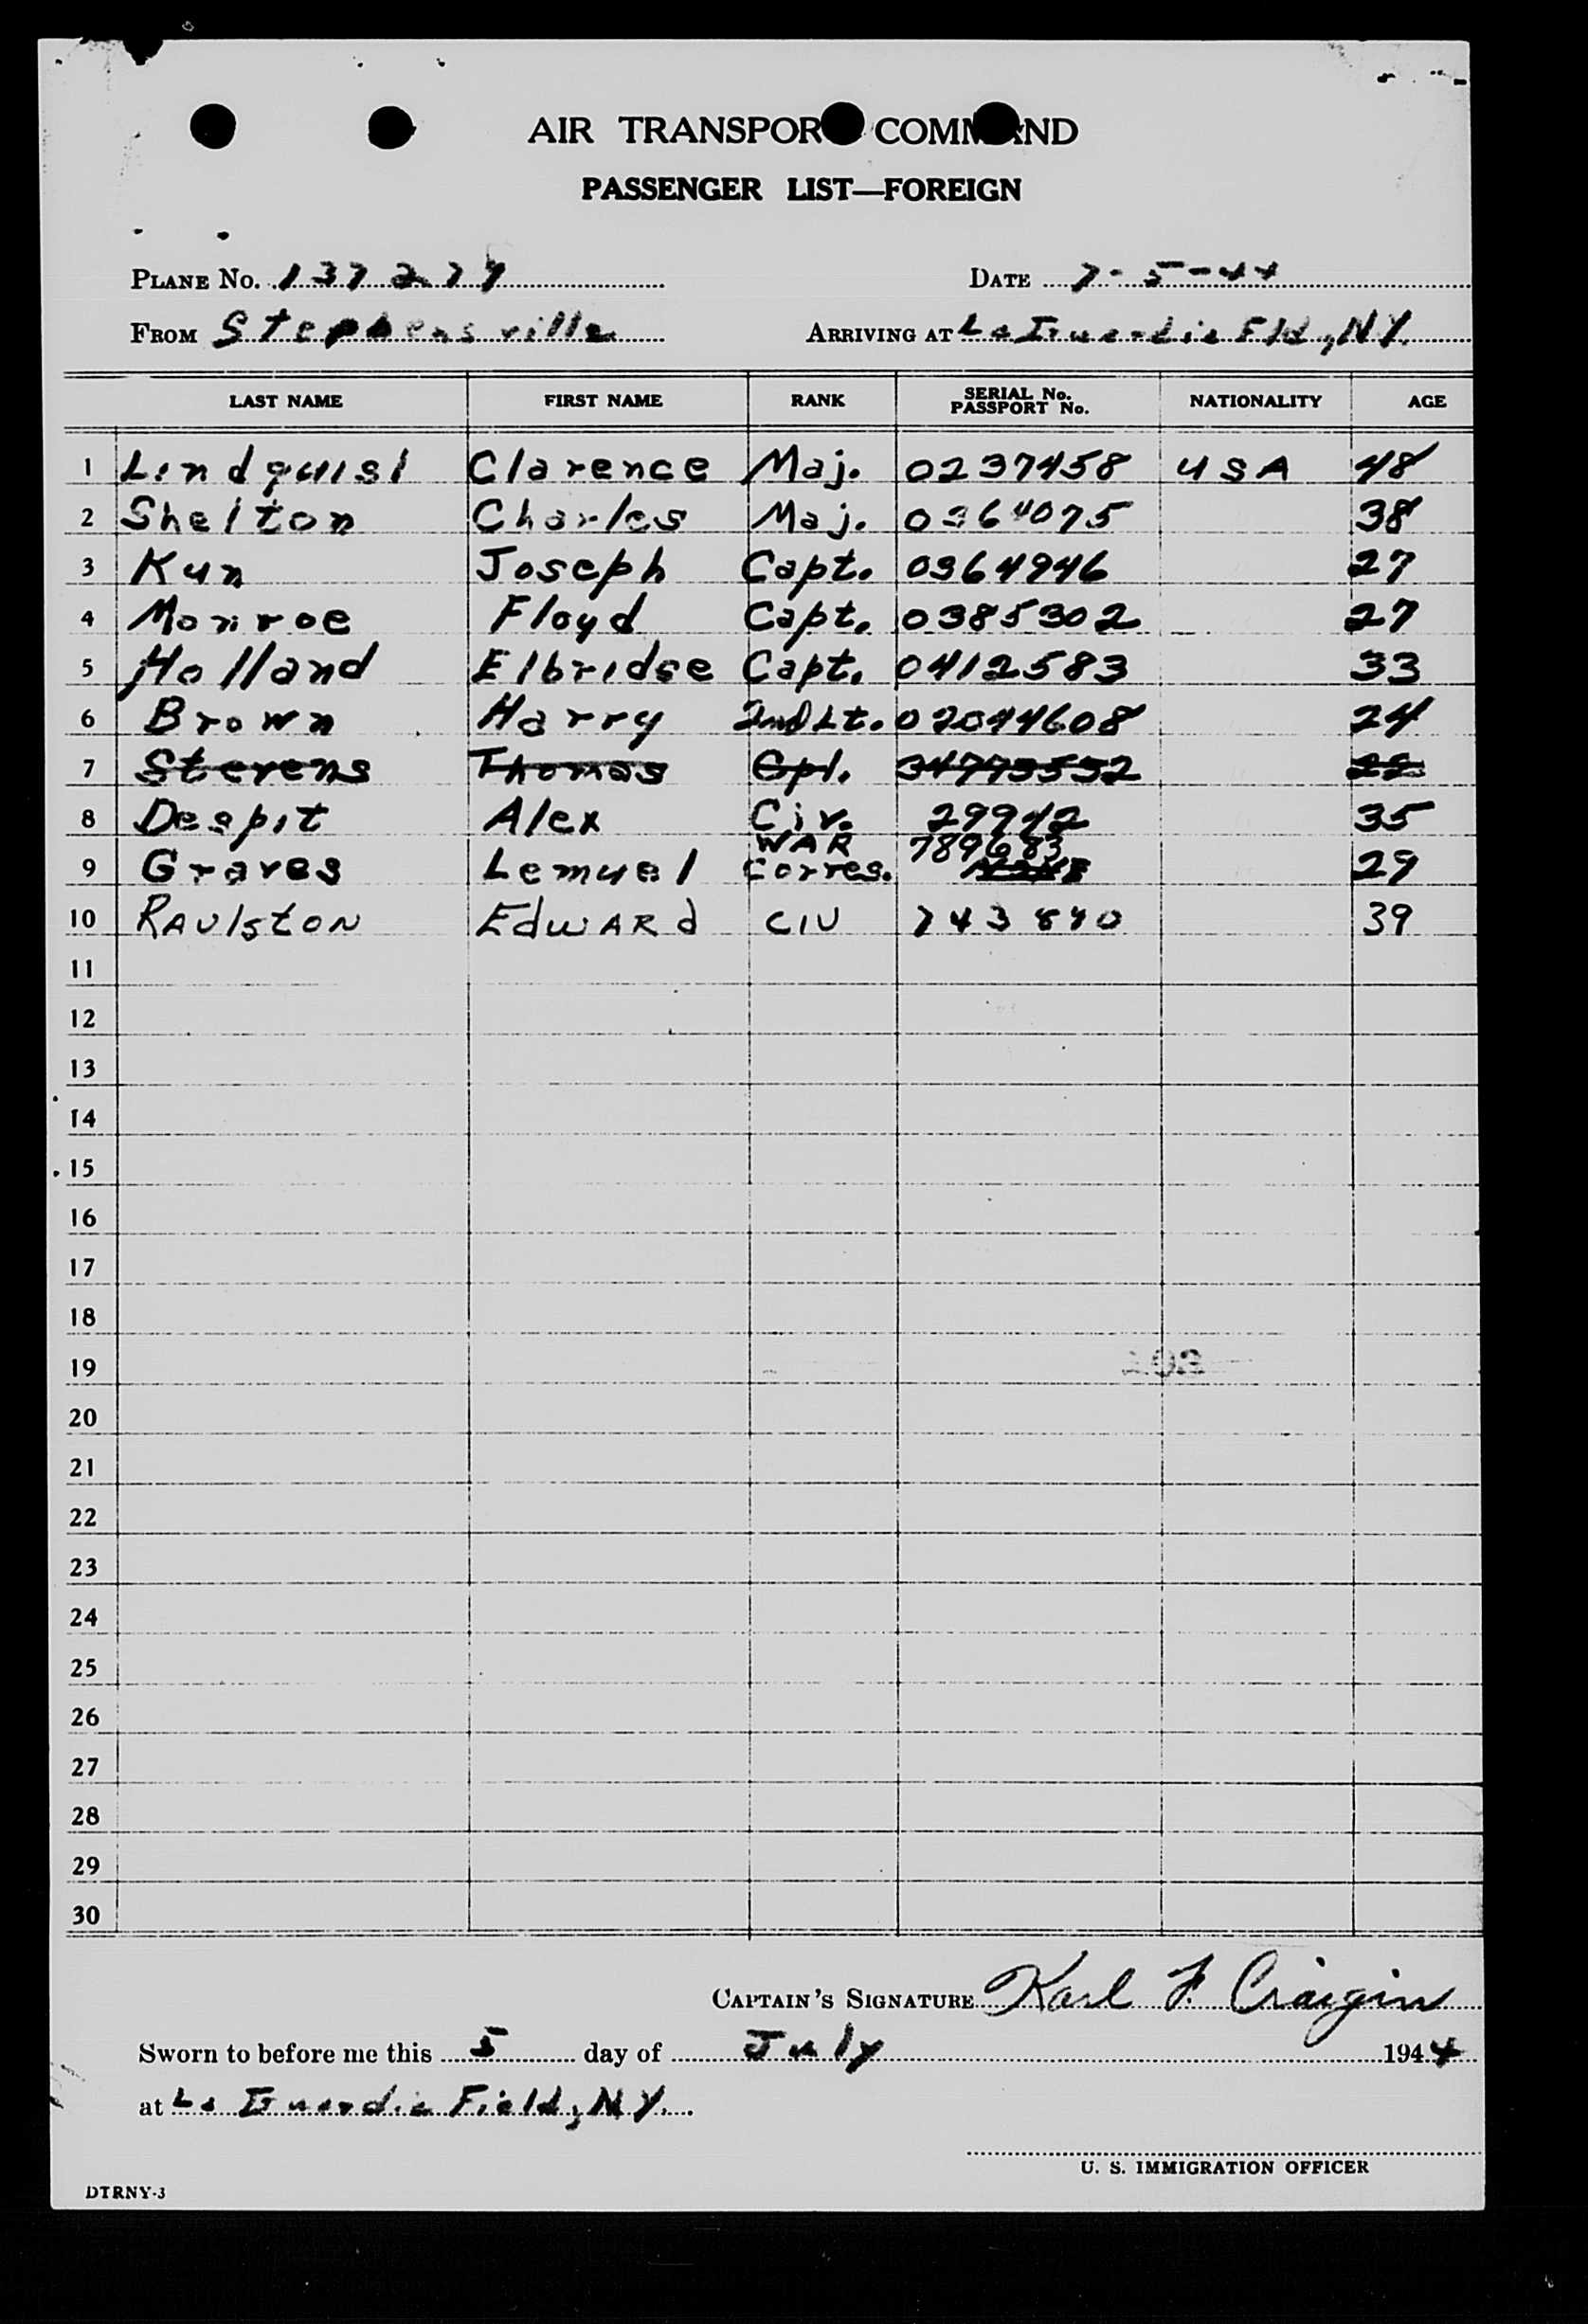 AIR TRANSPORT COMMAND
PASSENGER LIST—FOREIGN
PLANE No. 137277 DATE 7-5-44
FROM Stephensville ARRIVING AT La Guardia Fld, NY.
LAST NAME FIRST NAME RANK SERIAL No. PASSPORT No. NATIONALITY AGE
1 Lindquist Clarence Maj. 0237458 USA 48
2 Shelton Charles Maj. 0364075 38
3 Kun Joseph Capt. 0364946 27
4 Monroe Floyd Capt. 0385302 27
5 Holland Elbridge Capt. 0412583 33
6 Brown Harry 2nd Lt. 02044608 24
7 Stevens Thomas Cpl. 34775552 22
8 Despit Alex Civ. 29942 35
9 Graves Lemuel WAR Corres. 789683 29
10 RAulstoN EdwARd CIV 743840 39
11
12
13
14
15
16
17
18
19
20
21
22
23
24
25
26
27
28
29
30
CAPTAIN'S SIGNATURE Karl F. Craigin
Sworn to before me this 5 day of July 1944
at La Guardia Field, NY.
U. S. IMMIGRATION OFFICER
DTRNY-3